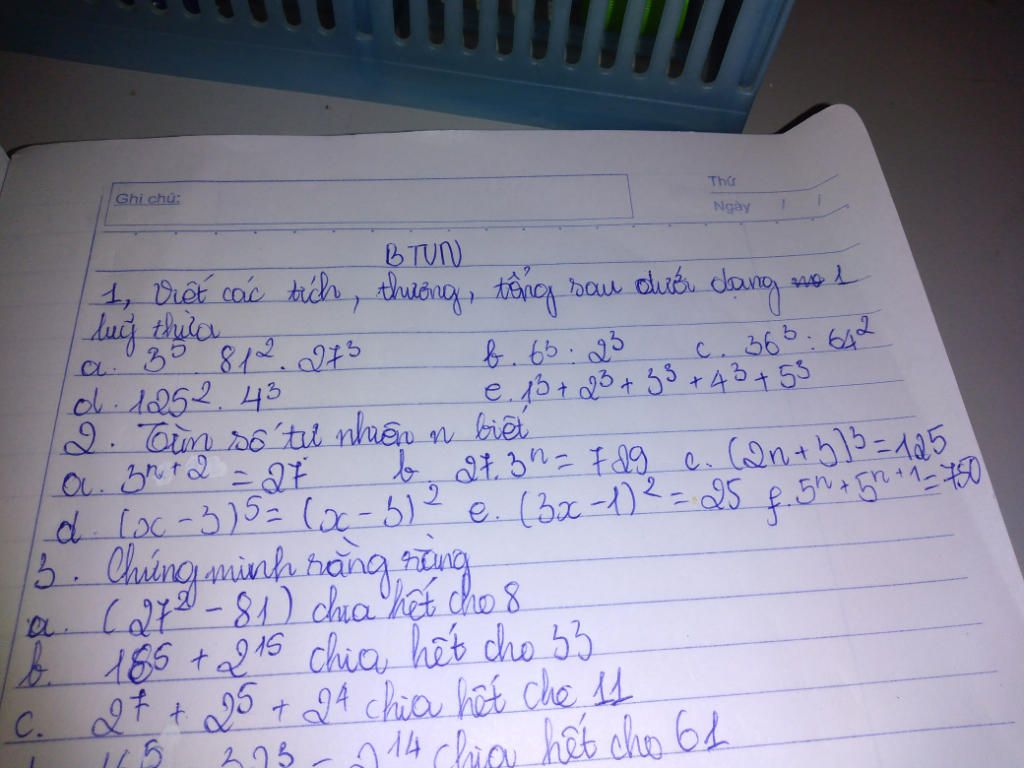 Ghi chú:
Thứ
Ngày / /
BTVN
1, Viết các tích, thương, tổng sau dưới dạng 1
luỹ thừa
a. 3⁵ . 81² . 27³ b. 6³ : 2³ c. 36³ : 64²
d. 125² . 4³ e. 1³ + 2³ + 3³ + 4³ + 5³
2. Tìm số tự nhiên n biết
a. 3ⁿ⁺² = 27 b 27.3ⁿ = 729 c. (2n + 3)³ = 125
d. (x - 3)⁵ = (x - 3)² e. (3x - 1)² = 25 f. 5ⁿ + 5ⁿ⁺¹ = 750
3. Chứng minh rằng rằng
a. (27² - 81) chia hết cho 8
b. 16⁵ + 2¹⁵ chia hết cho 33
c. 2⁷ + 2⁵ + 2⁴ chia hết cho 11
16⁵ - 32³ - 2¹⁴ chia hết cho 61